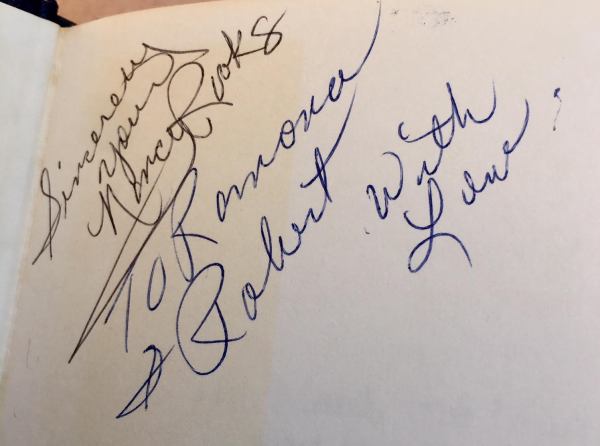 Sincerely
Yours
Nancy Rooks
To Ramona
& Robert
With
Love